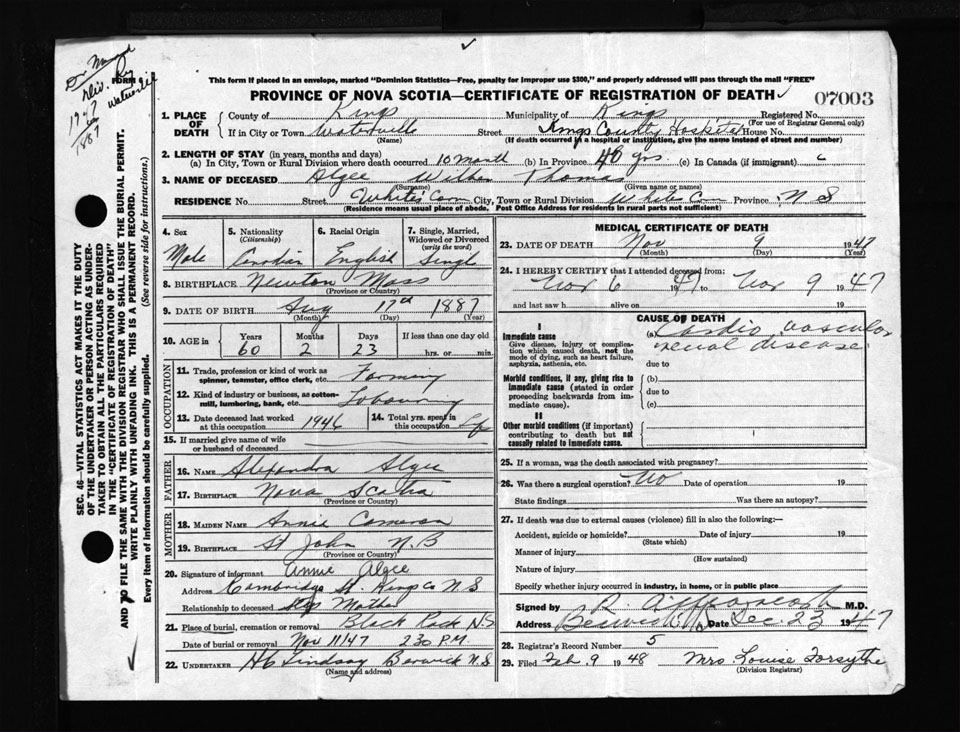 This form if placed in an envelope, marked "Dominion Statistics—Free, penalty for improper use $300," and properly addressed will pass through the mail "FREE"
PROVINCE OF NOVA SCOTIA—CERTIFICATE OF REGISTRATION OF DEATH 07003
1. PLACE OF DEATH County of Kings Municipality of Kings Registered No.
(For use of Registrar General only)
If in City or Town Waterville Street Kings County Hospital House No.
(Name) (If death occurred in a hospital or institution, give the name instead of street and number)
2. LENGTH OF STAY (in years, months and days)
(a) In City, Town or Rural Division where death occurred 10 month (b) In Province 40 yrs. (c) In Canada (if immigrant)
3. NAME OF DECEASED Algee Thomas
(Surname) (Given name or names)
RESIDENCE No. Street City, Town or Rural Division Province N S
(Residence means usual place of abode. Post Office Address for residents in rural parts not sufficient)
4. Sex Male
5. Nationality (Citizenship) Canadian
6. Racial Origin English
7. Single, Married, Widowed or Divorced (write the word) Single
8. BIRTHPLACE Newton Mass
(Province or Country)
9. DATE OF BIRTH Aug 17th 1887
(Month) (Day) (Year)
10. AGE in Years 60 Months 2 Days 23 If less than one day old hrs. or min.
OCCUPATION
11. Trade, profession or kind of work as spinner, teamster, office clerk, etc. Farming
12. Kind of industry or business, as cotton-mill, lumbering, bank, etc. Labouring
13. Date deceased last worked at this occupation 1946
14. Total yrs. spent in this occupation
15. If married give name of wife or husband of deceased
FATHER
16. NAME Alexandra Algee
17. BIRTHPLACE Nova Scotia
(Province or Country)
MOTHER
18. MAIDEN NAME Annie Cameron
19. BIRTHPLACE St John N.B
(Province or Country)
20. Signature of informant Annie Algee
Address Cambridge St. Kings Co N S
Relationship to deceased Step Mother
21. Place of burial, cremation or removal Black Rock N S
Date of burial or removal Nov 11/47 2 30 P.M.
22. UNDERTAKER Lindsay Berwick N.S
(Name and address)
MEDICAL CERTIFICATE OF DEATH
23. DATE OF DEATH Nov 9 1947
(Month) (Day) (Year)
24. I HEREBY CERTIFY that I attended deceased from:
Nov 6 1947 to Nov 9 1947
and last saw h alive on 19
CAUSE OF DEATH
I
Immediate cause
Give disease, injury or complication which caused death, not the mode of dying, such as heart failure, asphyxia, asthenia, etc.
(a) Cardio vascular renal disease
due to
Morbid conditions, if any, giving rise to immediate cause (stated in order proceeding backwards from immediate cause).
(b)
due to
(c)
II
Other morbid conditions (if important) contributing to death but not causally related to immediate cause.
25. If a woman, was the death associated with pregnancy?
26. Was there a surgical operation? No Date of operation 19
State findings Was there an autopsy?
27. If death was due to external causes (violence) fill in also the following:—
Accident, suicide or homicide? Date of injury 19
(State which)
Manner of injury
(How sustained)
Nature of injury
Specify whether injury occurred in industry, in home, or in public place
Signed by M.D.
Address Date Dec. 23 1947
28. Registrar's Record Number 5
29. Filed Feb. 9 1948 Mrs Louise Forsythe
(Division Registrar)
FORM
SEC. 46—VITAL STATISTICS ACT MAKES IT THE DUTY
OF THE UNDERTAKER OR PERSON ACTING AS UNDER-
TAKER TO OBTAIN ALL THE PARTICULARS REQUIRED
IN THE "CERTIFICATE OF REGISTRATION OF DEATH"
AND TO FILE THE SAME WITH THE DIVISION REGISTRAR WHO SHALL ISSUE THE BURIAL PERMIT.
WRITE PLAINLY WITH UNFADING INK. THIS IS A PERMANENT RECORD.
Every item of information should be carefully supplied. (See reverse side for instructions.)